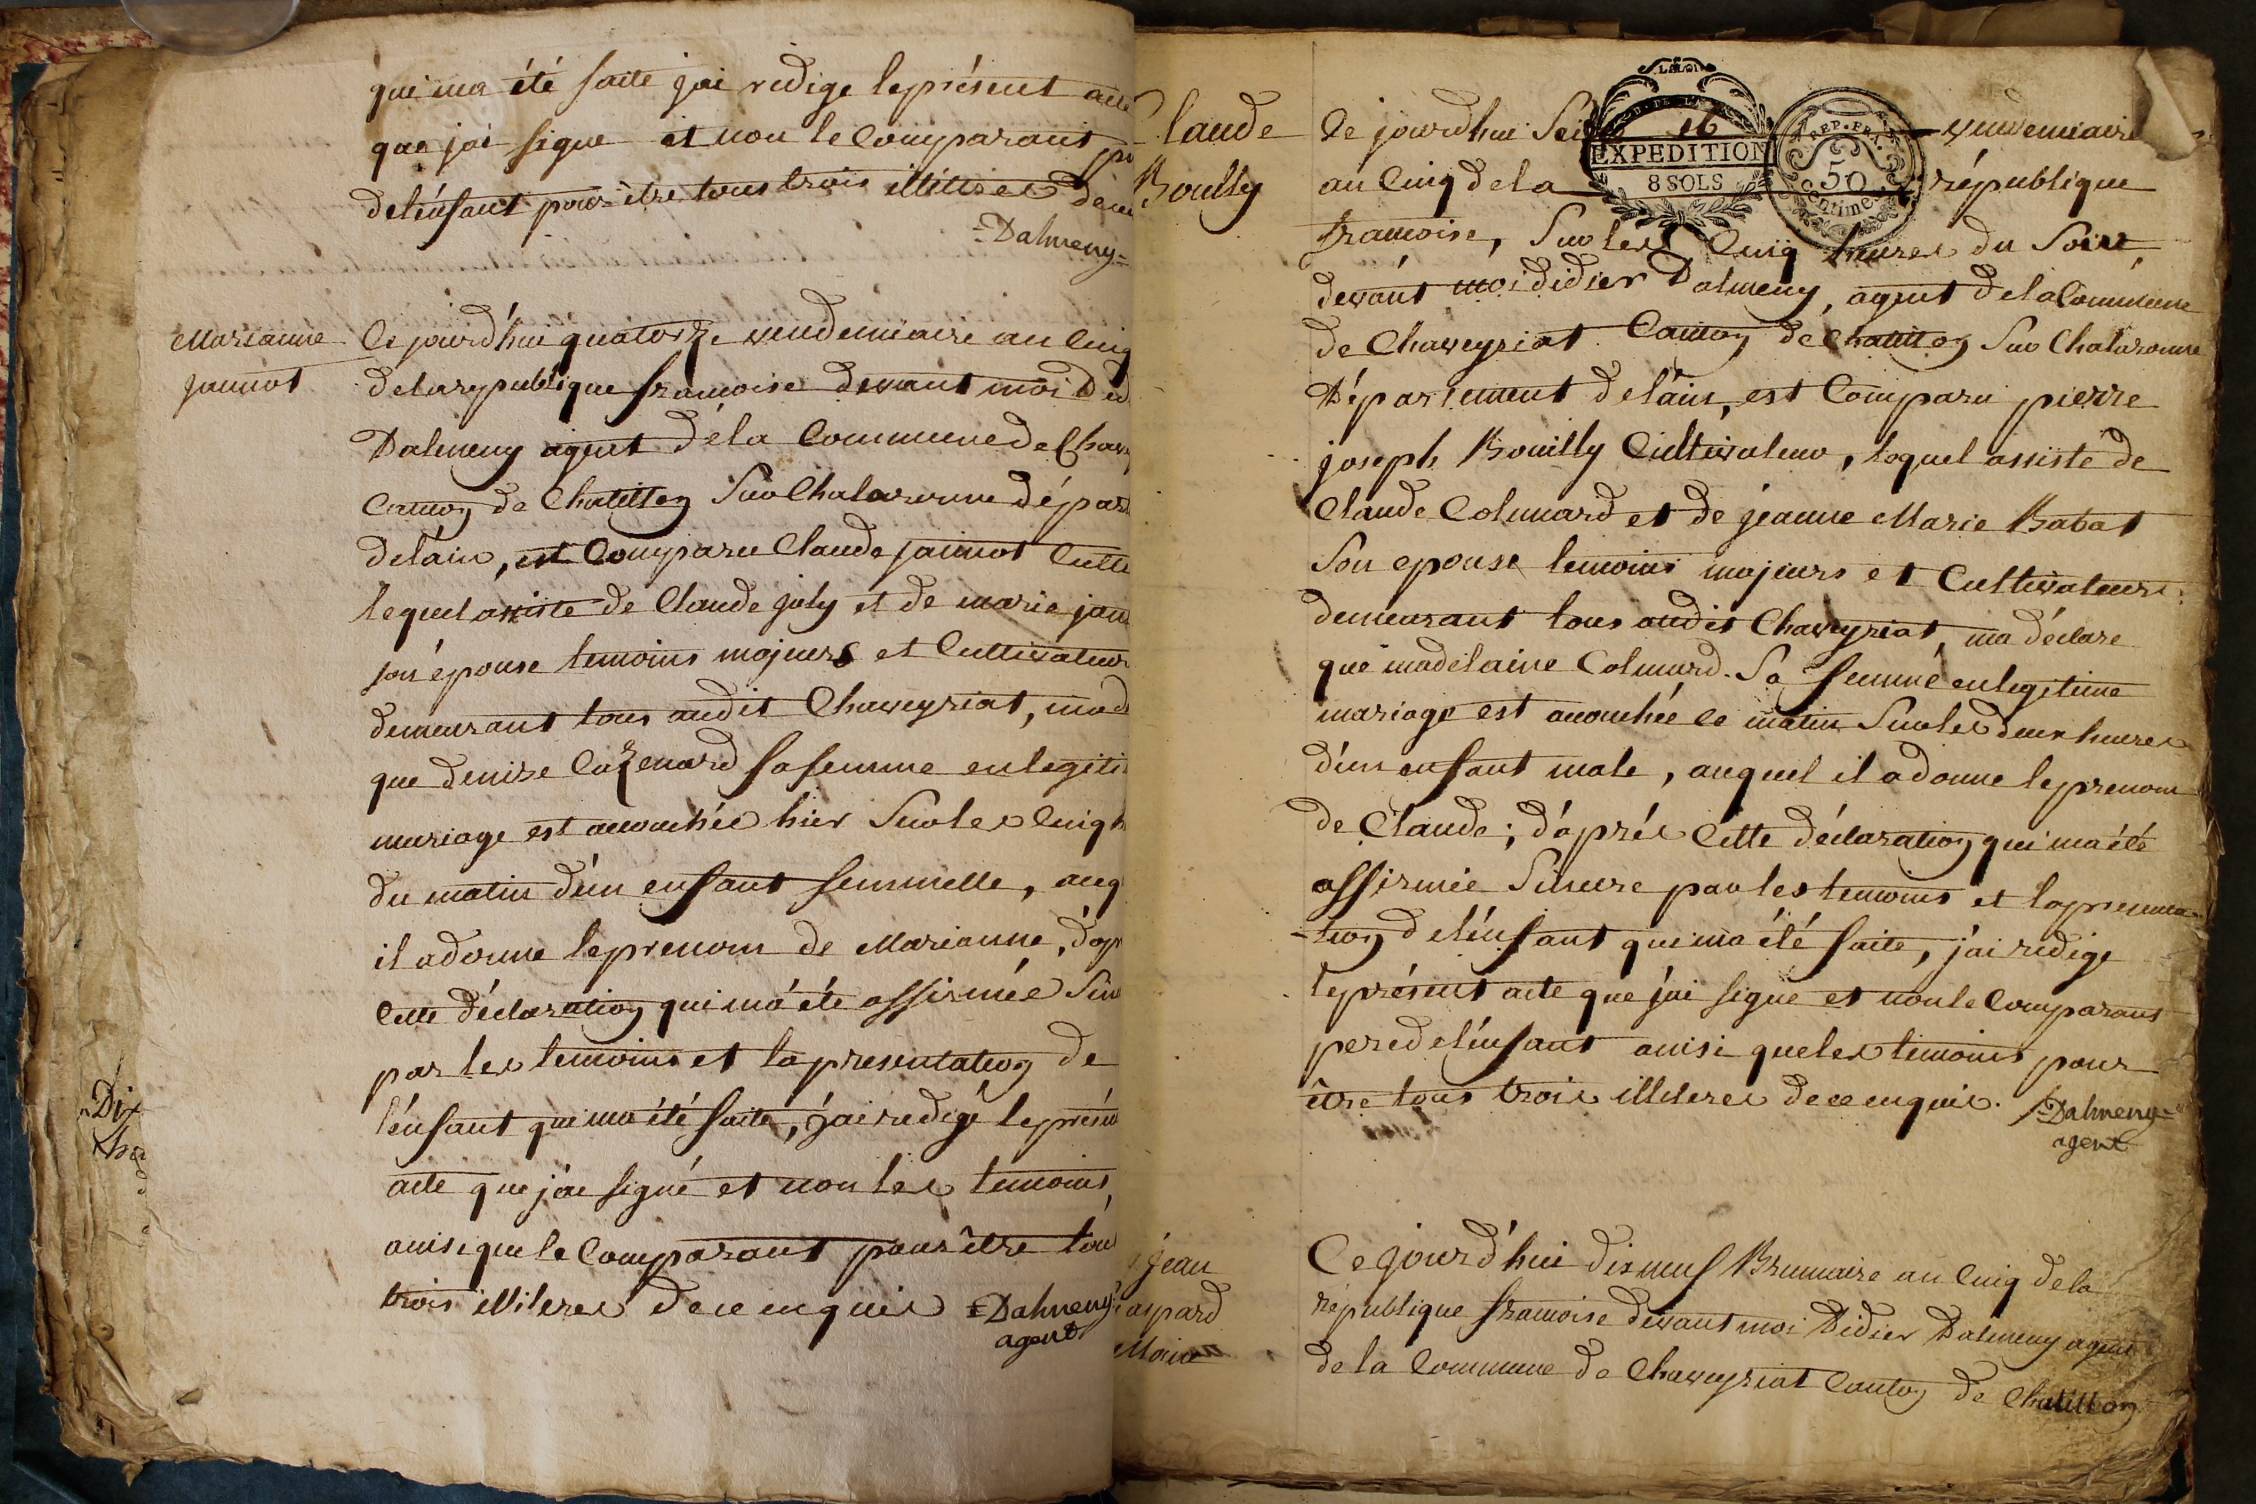 qui ma été faite j'ai redige leprésent acte
que j'ai signe et non le Comparant
de l'énfant pour être tous trois illitérés
=Dalmeny=
Marianne
jannot
Ce jourd'hui quatorze vendemiaire an Cinq
delarepublique francoise devant moi Did
Dalmeny agent dela Commune de Chav
Canton de Chatillon Sur Chalaronne dépar
delain, est Comparu Claude jannot Culti
lequel assiste de Claude joly et de marie jan
son épouse temoins majeurs et Cultivateur
demeurant tous audit Chaveyriat, ma d
que denise Cazenard sa femme en legiti
mariage est accouchée hier Sur les Cinq h
du matin d'un enfant femmelle, auq
il a donne leprenom de Marianne, d'apr
Cette déclaration qui ma été affirmée Sin
par les temoins et la presentation de
l'énfant qui ma été faite, j'ai redigé le présen
acte que j'ai signé et non les temoins,
ainsi que le Comparant pour être tou
trois illiteres de ce enquis =Dalmeny=
agent
Dix
Claude
Bouilly
Ce jourd'hui Sei 16 vendemiaire
LA LOI
EXPEDITION
8 SOLS
REP. FRA.
50
centimes
an Cinq de la république
francoise, Sur les Cinq heures du Soir,
devant moi didier Dalmeny, agent de la Commune
de Chaveyriat Canton de Chatillon Sur Chalaronne
Département de lain, est Comparu pierre
joseph Bouilly Cultivateur, loquel assiste de
Claude Colunard et de jeanne Marie Rabat
Son epouse temoins majeurs et Cultivateurs
demeurant tous audit Chaveyriat, ma déclare
que madelaine Colunard Sa femme en legitime
mariage est accouchée ce matin Sur les deux heures
d'un enfant male, auquel il a donne le prenom
de Claude; d'aprés Cette déclaration qui ma été
affirmée Sincere par les temoins et la presenta-
-tion de l'énfant qui ma été faite, j'ai redige
leprésent acte que j'ai signe et non le Comparant
pere de l'énfant ainsi que les temoins pour
être tous trois illiteres de ce enquis. =Dalmeny=
agent
jean
aspard
Moine
Ce jourd'hui dix neuf Brumaire an Cinq de la
republique francoise devant moi Didier Dalmeny agent
de la Commune de Chaveyriat Canton de Chatillon